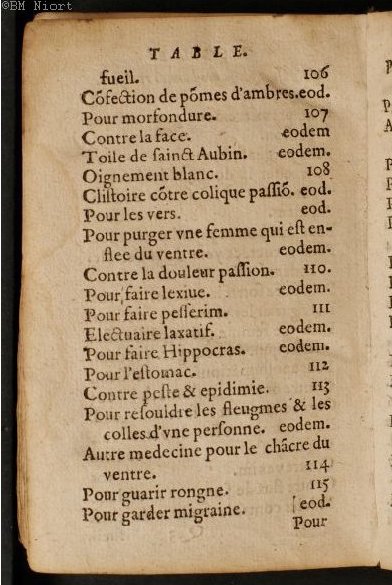 ©BM Niort
TABLE.
fueil. 106
Cõfection de põmes d'ambres. eod.
Pour morfondure. 107
Contre la face. eodem
Toile de sainct Aubin. eodem.
Oignement blanc. 108
Clistoire cõtre colique passiõ. eod.
Pour les vers. eod.
Pour purger vne femme qui est en-
flee du ventre. eodem.
Contre la douleur passion. 110.
Pour faire lexiue. eodem.
Pour faire pesserim. 111
Electuaire laxatif. eodem.
Pour faire Hippocras. eodem.
Pour l'estomac. 112
Contre peste & epidimie. 113
Pour resouldre les fleugmes & les
colles d'vne personne. eodem.
Autre medecine pour le chãcre du
ventre. 114
Pour guarir rongne. 115
Pour garder migraine. eod.
Pour